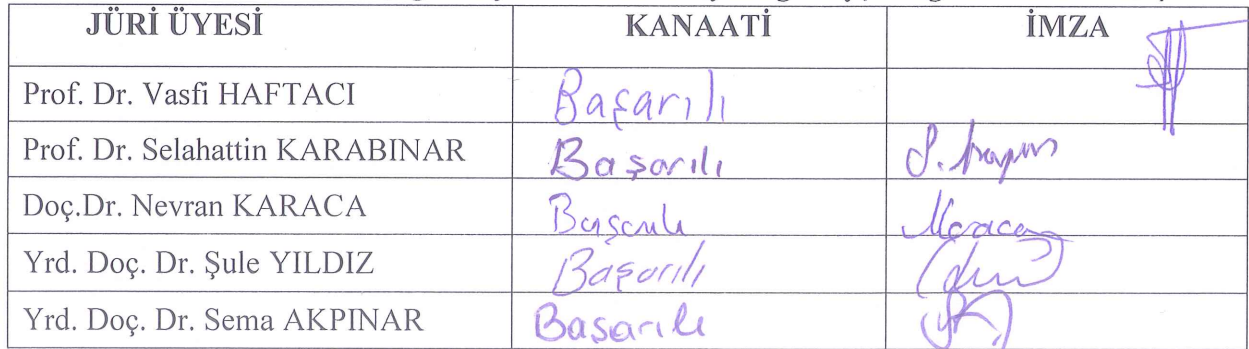 JÜRİ ÜYESİ KANAATİ İMZA
Prof. Dr. Vasfi HAFTACI Başarılı
Prof. Dr. Selahattin KARABINAR Başarılı
Doç.Dr. Nevran KARACA Başarılı
Yrd. Doç. Dr. Şule YILDIZ Başarılı
Yrd. Doç. Dr. Sema AKPINAR Başarılı